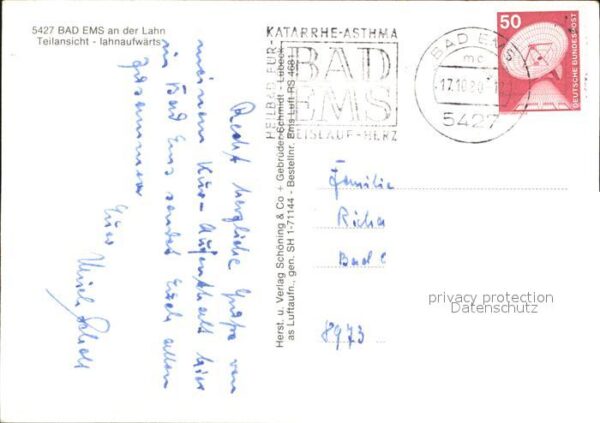 5427 BAD EMS an der Lahn
Teilansicht - lahnaufwärts
KATARRHE-ASTHMA
HEILBAD FÜR
BAD
EMS
KREISLAUF-HERZ
BAD EMS
mc
17.10.80
5427
50
DEUTSCHE BUNDESPOST
Recht herzliche Grüße von
meinem Kur-Aufenthalt hier
in Bad Ems sendet Euch allen
zusammen
Euer
Herst. u. Verlag Schöning & Co + Gebrüder Schmidt - Lübeck
as Luftaufn., gen. SH 1-71144 - Bestellnr. Ems Luft RS 4681
Familie
Richa
Bad
8973
privacy protection
Datenschutz